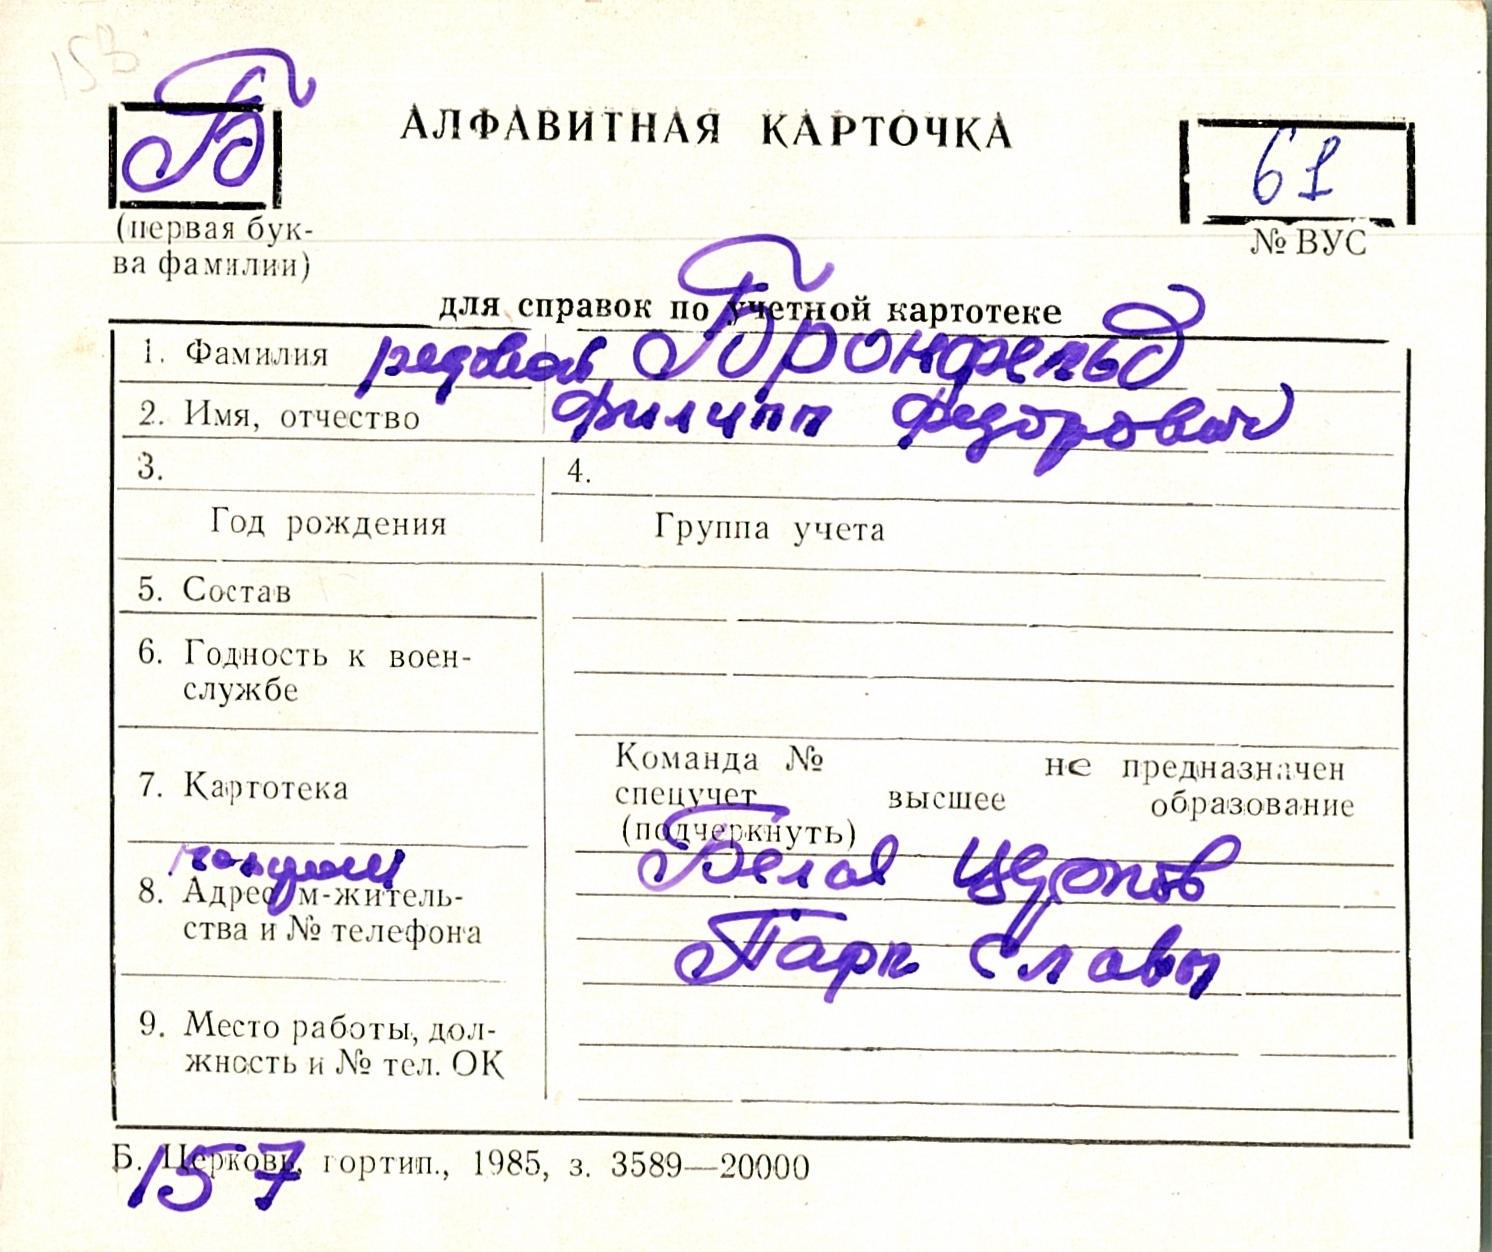 153
Б
АЛФАВИТНАЯ КАРТОЧКА
61
(первая бук-
ва фамилии)
№ ВУС
для справок по учетной картотеке
1. Фамилия рядовой Бронфельд
2. Имя, отчество Филипп Федорович
3. 4.
Год рождения Группа учета
5. Состав
6. Годность к воен-
службе
7. Картотека
Команда № не предназначен
спецучет высшее образование
(подчеркнуть)
8. Адрес м-житель-
ства и № телефона
Белая Церковь
Парк Славы
9. Место работы, дол-
жность и № тел. ОК
Б. Церковь, гортип., 1985, з. 3589—20000
157